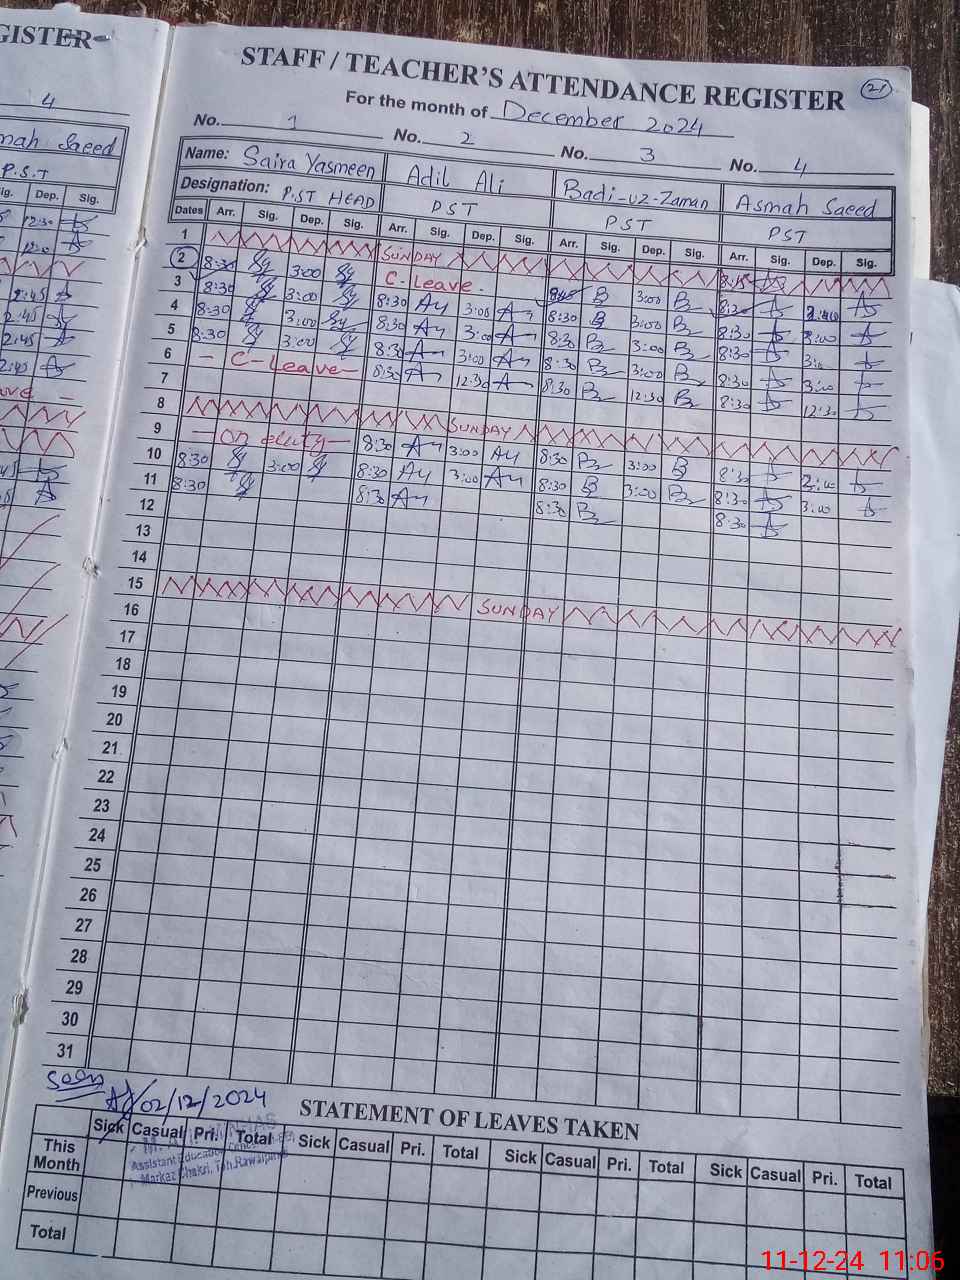 GISTER
4
mah Saeed
P.S.T
ig. Dep. Sig.
12:30
12:0
2:45
2:45
2:45
2:45
21
STAFF / TEACHER'S ATTENDANCE REGISTER
For the month of December 2024
No. 1 No. 2 No. 3 No. 4
Name: Saira Yasmeen Adil Ali Badi-uz-Zaman Asmah Saeed
Designation: P.ST HEAD PST PST PST
Dates Arr. Sig. Dep. Sig. Arr. Sig. Dep. Sig. Arr. Sig. Dep. Sig. Arr. Sig. Dep. Sig.
1 SUNDAY
2 8:30 3:00 C-Leave. 3:00 8:30
3 8:30 3:00 8:30 3:00 8:30 3:00 8:30 3:00
4 8:30 3:00 8:30 3:00 8:30 3:00 8:30 3:00
5 8:30 3:00 8:30 3:00 8:30 3:00 8:30 3:00
6 - C-Leave- 8:30 12:30 8:30 12:30 8:30 12:30
7
8 SUNDAY
9 - on duty - 8:30 3:00 8:30 3:00 8:30
10 8:30 3:00 8:30 3:00 8:30 3:00 8:30 3:00
11 8:30 8:30 8:30 8:30
12
13
14
15 SUNDAY
16
17
18
19
20
21
22
23
24
25
26
27
28
29
30
31
Seen
02/12/2024
STATEMENT OF LEAVES TAKEN
Sick Casual Pri. Total Sick Casual Pri. Total Sick Casual Pri. Total Sick Casual Pri. Total
This Month
Previous
Total
Assistant Education Officer
Markaz Chakri, Teh. Rawalpindi
11-12-24 11:06